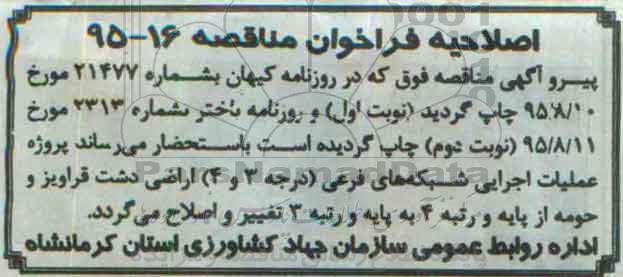 اصلاحیه فراخوان مناقصه ۱۶-۹۵
پیرو آگهی مناقصه فوق که در روزنامه کیهان بشماره ۲۱۴۷۷ مورخ
۹۵/۸/۱۰ چاپ گردید (نوبت اول) و روزنامه باختر بشماره ۲۳۱۳ مورخ
۹۵/۸/۱۱ (نوبت دوم) چاپ گردیده است باستحضار می‌رساند پروژه
عملیات اجرایی شبکه‌های فرعی (درجه ۳ و ۴) اراضی دشت قراویز و
حومه از پایه و رتبه ۴ به پایه و رتبه ۳ تغییر و اصلاح می‌گردد.
اداره روابط عمومی سازمان جهاد کشاورزی استان کرمانشاه